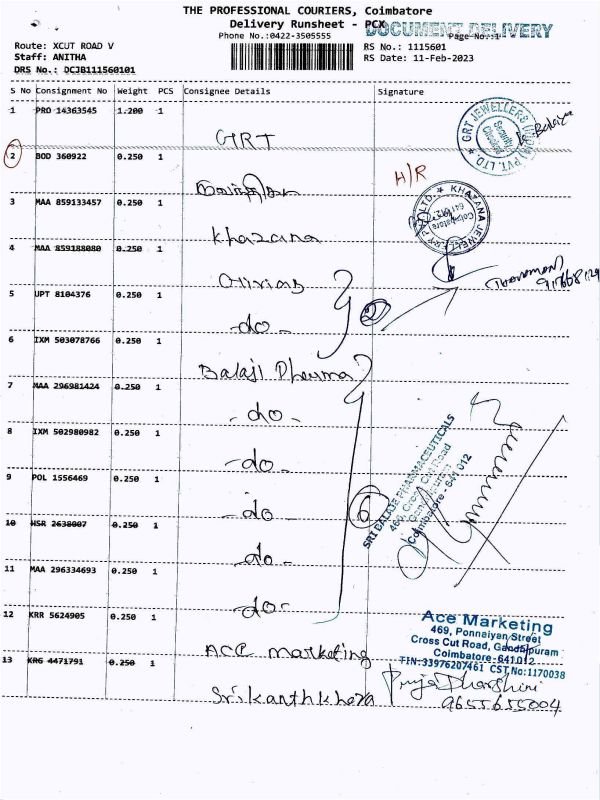 THE PROFESSIONAL COURIERS, Coimbatore
Delivery Runsheet - PCX
DOCUMENT DELIVERY
Phone No.:0422-3505555
Page No.:1
Route: XCUT ROAD V
RS No.: 1115601
Staff: ANITHA
RS Date: 11-Feb-2023
DRS No.: DCJB111560101
S No Consignment No Weight PCS Consignee Details Signature
1 PRO 14363545 1.200 1
GRT
GRT JEWELLERS (INDIA) PVT. LTD.
Security Checked
2 BOD 360922 0.250 1
H/R
3 MAA 859133457 0.250 1
Khazana
KHAZANA JEWELLERY PVT. LTD.
Coimbatore
4 MAA 859188080 0.250 1
5 UPT 8104376 0.250 1
-do-
2
6 IXM 503078766 0.250 1
Balaji Pharma
7 MAA 296981424 0.250 1
-do-
8 IXM 502980982 0.250 1
-do-
9 POL 1556469 0.250 1
-do-
6
SRI BALAJI PHARMACEUTICALS
469, Cross Cut Road
Coimbatore - 641 012
10 HSR 2638007 0.250 1
-do-
11 MAA 296334693 0.250 1
-do-
12 KRR 5624905 0.250 1
ACE marketing
Ace Marketing
469, Ponnaiyan Street
Cross Cut Road, Gandhipuram
Coimbatore-641012
TIN:33976207461 CST No:1170038
13 KRG 4471791 0.250 1
9655655004